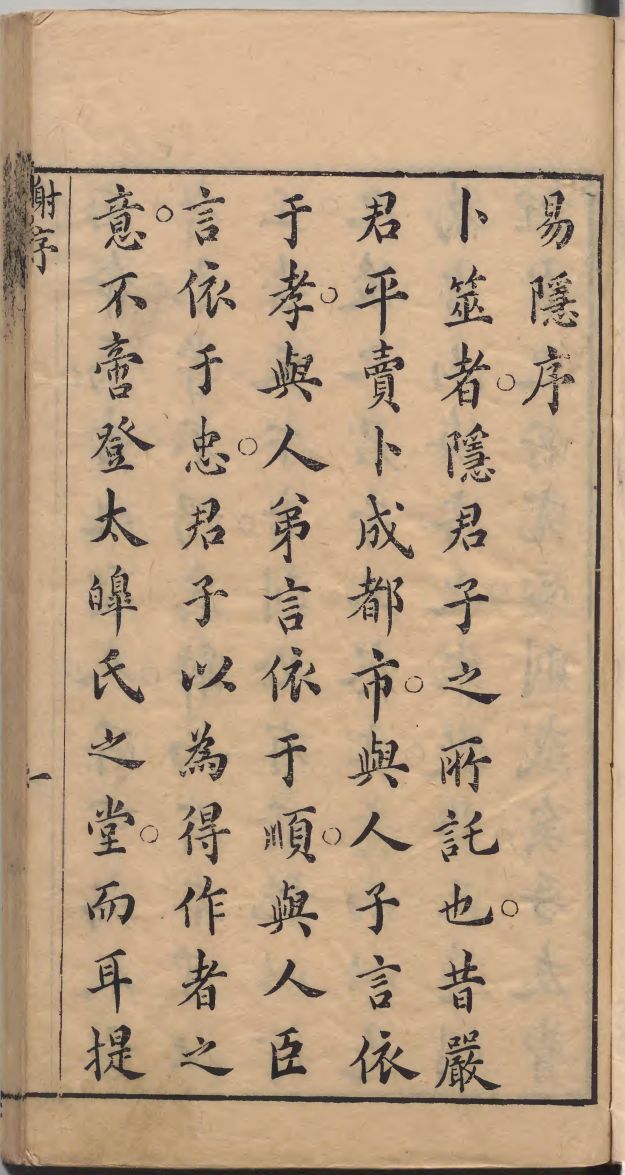 易隱序
卜筮者○隱君子之所託也○昔嚴
君平賣卜成都市○與人子言依
于孝○與人弟言依于順○與人臣
言依于忠○君子以為得作者之
意○不啻登太皥氏之堂○而耳提
謝序
一